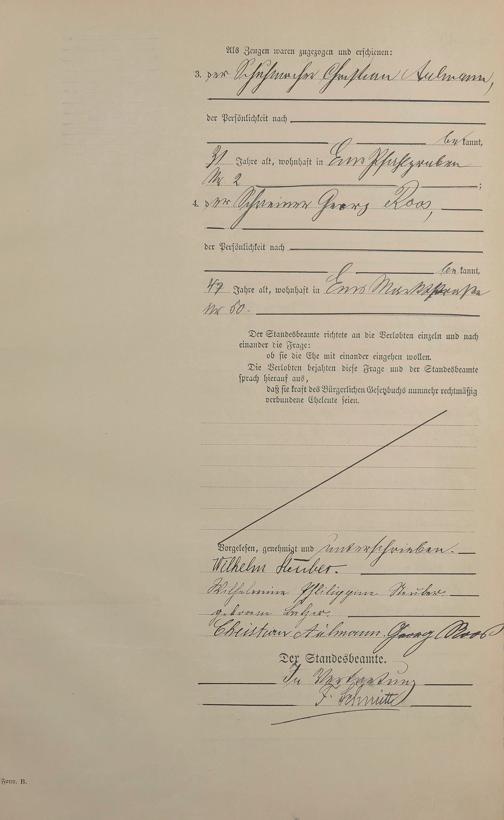 Als Zeugen waren zugezogen und erschienen:
3. der Schuhmacher Christian Aulmann,
der Persönlichkeit nach
bekannt,
31 Jahre alt, wohnhaft in Ems Pfahlgraben
Nr 2 ;
4. der Schreiner Georg Roos,
der Persönlichkeit nach
bekannt,
49 Jahre alt, wohnhaft in Ems Marktstraße
Nr 60.
Der Standesbeamte richtete an die Verlobten einzeln und nach
einander die Frage:
ob sie die Ehe mit einander eingehen wollen.
Die Verlobten bejahten diese Frage und der Standesbeamte
sprach hierauf aus,
daß sie kraft des Bürgerlichen Gesetzbuchs nunmehr rechtmäßig
verbundene Eheleute seien.
Vorgelesen, genehmigt und unterschrieben.
Wilhelm Steuber.
Wilhelmine Philippine Steuber
geborene
Christian Aulmann. Georg Roos
Der Standesbeamte.
In Vertretung
F. Schmitt
Form. B.